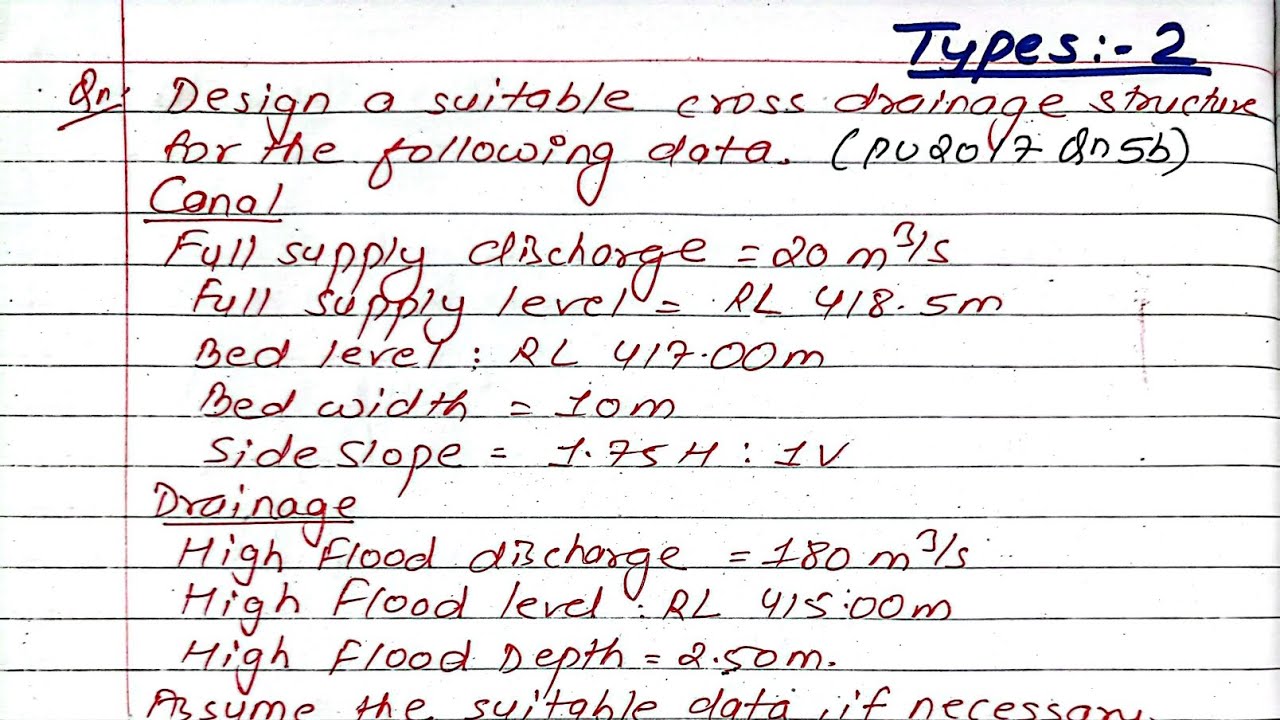 Types:- 2
Qn: Design a suitable cross drainage structure
for the following data. (PU 2017 Qn 5b)
Canal
Full supply discharge = 20 m³/s
Full supply level = RL 418.5m
Bed level : RL 417.00m
Bed width = 10m
Side slope = 1.75 H : 1V
Drainage
High Flood discharge = 180 m³/s
High Flood level : RL 415.00m
High Flood Depth = 2.50m.
Assume the suitable data, if necessary.